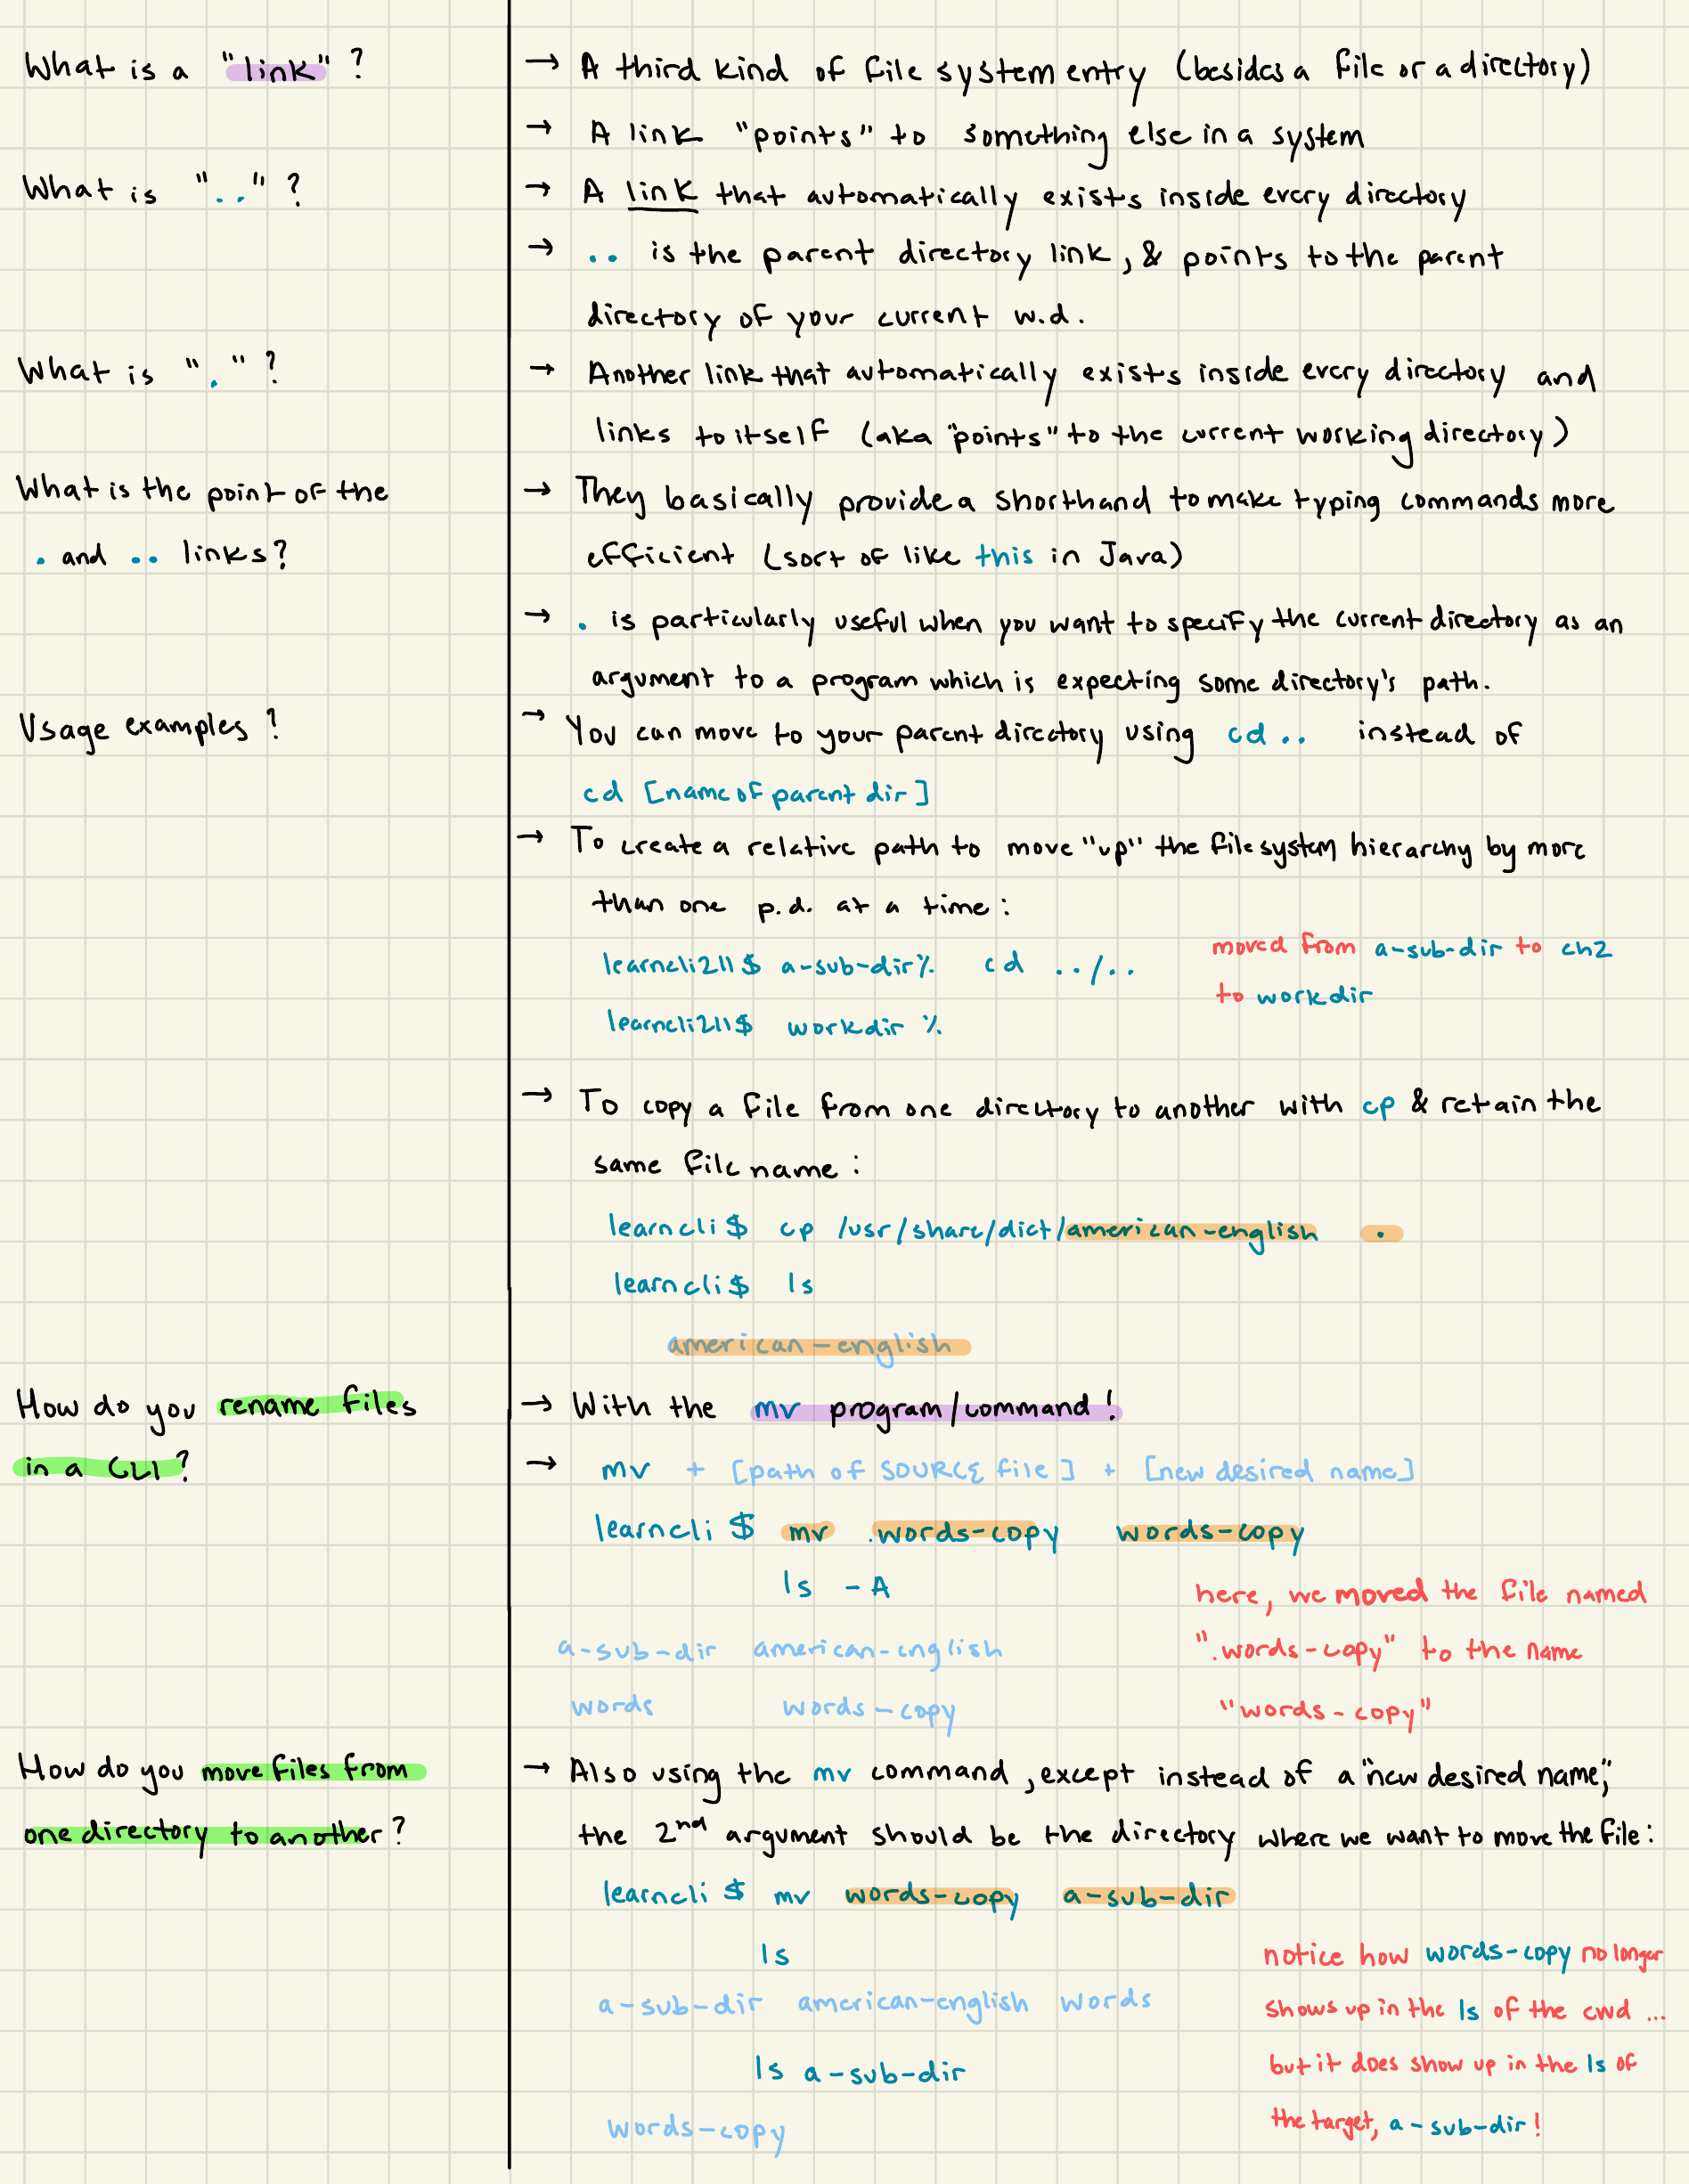 What is a "link"?
→ A third kind of file system entry (besides a file or a directory)
→ A link "points" to something else in a system
What is ".."?
→ A link that automatically exists inside every directory
→ .. is the parent directory link, & points to the parent
directory of your current w.d.
What is "."?
→ Another link that automatically exists inside every directory and
links to itself (aka "points" to the current working directory)
What is the point of the
. and .. links?
→ They basically provide a shorthand to make typing commands more
efficient (sort of like this in Java)
→ . is particularly useful when you want to specify the current directory as an
argument to a program which is expecting some directory's path.
Usage examples?
→ You can move to your parent directory using cd .. instead of
cd [name of parent dir]
→ To create a relative path to move "up" the file system hierarchy by more
than one p.d. at a time:
learncli211$ a-sub-dir% cd ../..
learncli211$ workdir %
moved from a-sub-dir to ch2
to workdir
→ To copy a file from one directory to another with cp & retain the
same file name:
learncli$ cp /usr/share/dict/american-english .
learncli$ ls
american-english
How do you rename files
in a CLI?
→ With the mv program/command!
→ mv + [path of SOURCE file] + [new desired name]
learncli $ mv .words-copy words-copy
ls -A
a-sub-dir american-english
words words-copy
here, we moved the file named
".words-copy" to the name
"words-copy"
How do you move files from
one directory to another?
→ Also using the mv command, except instead of a "new desired name,"
the 2nd argument should be the directory where we want to move the file:
learncli $ mv words-copy a-sub-dir
ls
a-sub-dir american-english words
ls a-sub-dir
words-copy
notice how words-copy no longer
shows up in the ls of the cwd ...
but it does show up in the ls of
the target, a-sub-dir!